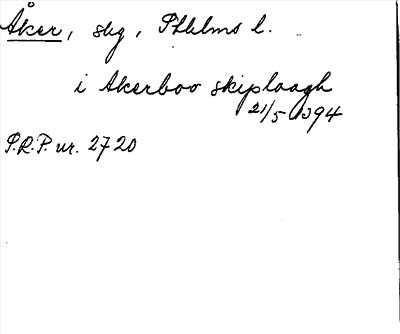 Åker, skg, Sthlms l.
i Akerboo skiplaagh
21/5 1394
P.R.P. nr. 2720